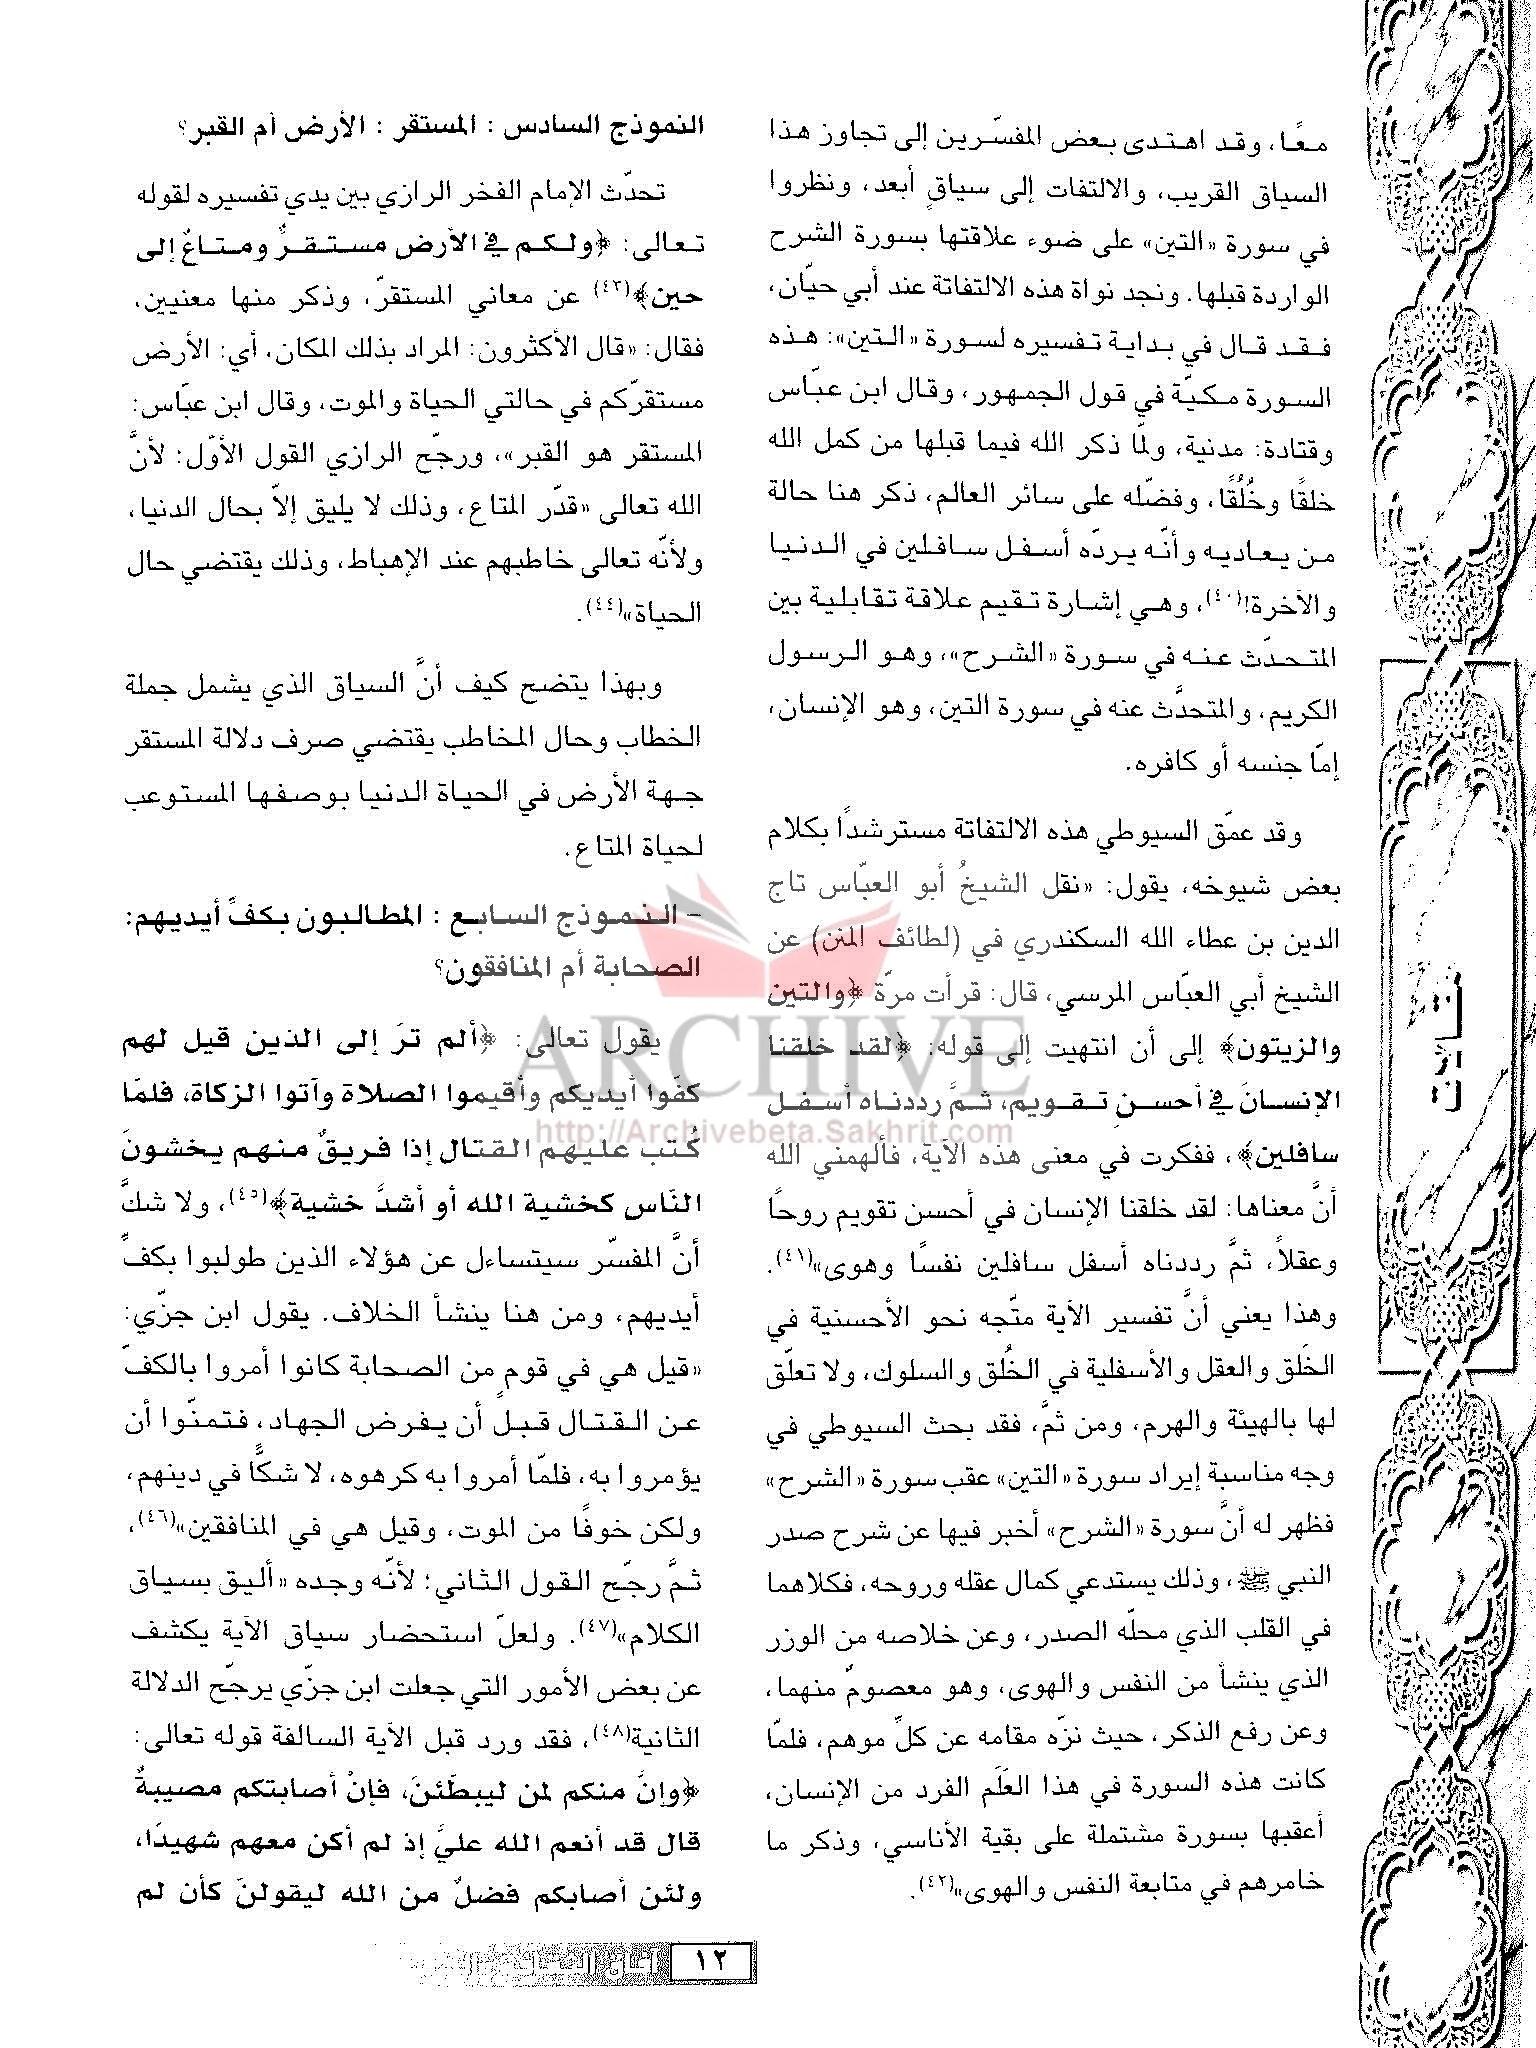 معًا، وقد اهتدى بعض المفسّرين إلى تجاوز هذا
السياق القريب، والالتفات إلى سياقٍ أبعد، ونظروا
في سورة «التين» على ضوء علاقتها بسورة الشرح
الواردة قبلها. ونجد نواة هذه الالتفاتة عند أبي حيّان،
فقد قال في بداية تفسيره لسورة «التين»: هذه
السورة مكيّة في قول الجمهور، وقال ابن عبّاس
وقتادة: مدنية، ولمّا ذكر الله فيما قبلها من كمل الله
خلقًا وخُلُقًا، وفضّله على سائر العالم، ذكر هنا حالة
من يعاديه وأنّه يردّه أسفل سافلين في الدنيا
والآخرة!(٤٠)، وهي إشارة تقيم علاقة تقابلية بين
المتحدّث عنه في سورة «الشرح»، وهو الرسول
الكريم، والمتحدَّث عنه في سورة التين، وهو الإنسان،
إمّا جنسه أو كافره.
وقد عمّق السيوطي هذه الالتفاتة مسترشدًا بكلام
بعض شيوخه، يقول: «نقل الشيخُ أبو العبّاس تاج
الدين بن عطاء الله السكندري في (لطائف المنن) عن
الشيخ أبي العبّاس المرسي، قال: قرأت مرّة ﴿والتين
والزيتون﴾ إلى أن انتهيت إلى قوله: ﴿لقد خلقنا
الإنسانَ في أحسنِ تقويم، ثمَّ رددناه أسفل
سافلين﴾، ففكرت في معنى هذه الآية، فألهمني الله
أنَّ معناها: لقد خلقنا الإنسان في أحسن تقويم روحًا
وعقلاً، ثمَّ رددناه أسفل سافلين نفسًا وهوى»(٤١).
وهذا يعني أنَّ تفسير الآية متّجه نحو الأحسنية في
الخَلق والعقل والأسفلية في الخُلق والسلوك، ولا تعلّق
لها بالهيئة والهرم، ومن ثمَّ، فقد بحث السيوطي في
وجه مناسبة إيراد سورة «التين» عقب سورة «الشرح»
فظهر له أنَّ سورة «الشرح» أخبر فيها عن شرح صدر
النبي ﷺ، وذلك يستدعي كمال عقله وروحه، فكلاهما
في القلب الذي محلّه الصدر، وعن خلاصه من الوزر
الذي ينشأ من النفس والهوى، وهو معصومٌ منهما،
وعن رفع الذكر، حيث نزّه مقامه عن كلِّ موهم، فلمّا
كانت هذه السورة في هذا العَلَم الفرد من الإنسان،
أعقبها بسورة مشتملة على بقية الأناسي، وذكر ما
خامرهم في متابعة النفس والهوى»(٤٢).
النموذج السادس : المستقر : الأرض أم القبر؟
تحدّث الإمام الفخر الرازي بين يدي تفسيره لقوله
تعالى: ﴿ولكم في الأرض مستقرٌ ومتاعٌ إلى
حين﴾(٤٣) عن معاني المستقرّ، وذكر منها معنيين،
فقال: «قال الأكثرون: المراد بذلك المكان، أي: الأرض
مستقرّكم في حالتي الحياة والموت، وقال ابن عبّاس:
المستقر هو القبر»، ورجّح الرازي القول الأوّل؛ لأنَّ
الله تعالى «قدّر المتاع، وذلك لا يليق إلاّ بحال الدنيا،
ولأنّه تعالى خاطبهم عند الإهباط، وذلك يقتضي حال
الحياة»(٤٤).
وبهذا يتضح كيف أنَّ السياق الذي يشمل جملة
الخطاب وحال المخاطب يقتضي صرف دلالة المستقر
جهة الأرض في الحياة الدنيا بوصفها المستوعب
لحياة المتاع.
- النموذج السابع : المطالبون بكفِّ أيديهم:
الصحابة أم المنافقون؟
يقول تعالى: ﴿ألم ترَ إلى الذين قيل لهم
كفّوا أيديكم وأقيموا الصلاة وآتوا الزكاة، فلمّا
كُتب عليهم القتال إذا فريقٌ منهم يخشونَ
النّاس كخشية الله أو أشدَّ خشية﴾(٤٥)، ولا شكَّ
أنَّ المفسّر سيتساءل عن هؤلاء الذين طولبوا بكفِّ
أيديهم، ومن هنا ينشأ الخلاف. يقول ابن جزّي:
«قيل هي في قومٍ من الصحابة كانوا أمروا بالكفّ
عن القتال قبل أن يفرض الجهاد، فتمنّوا أن
يؤمروا به، فلمّا أمروا به كرهوه، لا شكًّا في دينهم،
ولكن خوفًا من الموت، وقيل هي في المنافقين»(٤٦)،
ثمَّ رجّح القول الثاني؛ لأنّه وجده «أليق بسياق
الكلام»(٤٧). ولعلّ استحضار سياق الآية يكشف
عن بعض الأمور التي جعلت ابن جزّي يرجّح الدلالة
الثانية(٤٨)، فقد ورد قبل الآية السالفة قوله تعالى:
﴿وإنَّ منكم لمن ليبطّئن، فإنْ أصابتكم مصيبةٌ
قال قد أنعم الله عليَّ إذ لم أكن معهم شهيدًا،
ولئن أصابكم فضلٌ من الله ليقولنَ كأن لم
مقالات
١٢
ARCHIVE
http://Archivebeta.Sakhrit.com